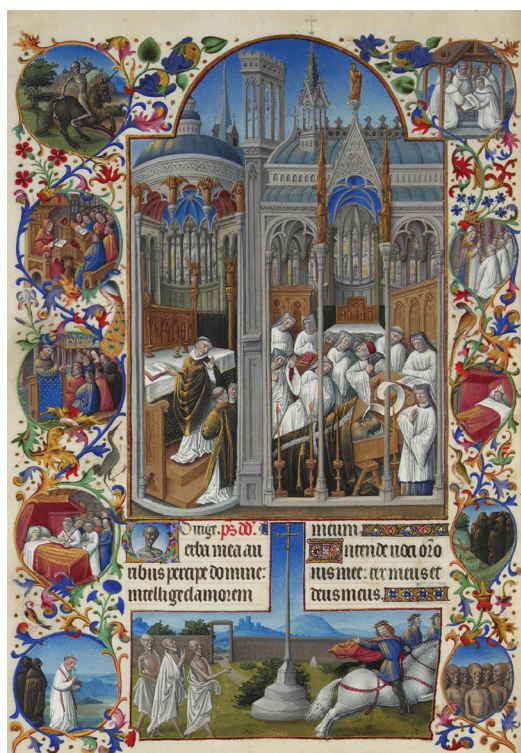 Dirige. ps dd.
Verba mea au
ribus percipe domine:
intellige clamorem
meum.
Intende voci oro
nis mee: rex meus et
deus meus.